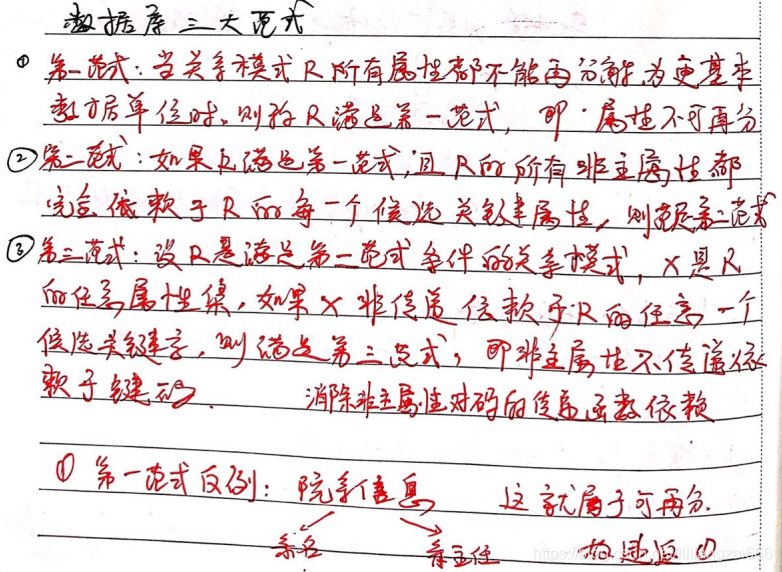 数据库三大范式
① 第一范式:当关系模式R所有属性都不能再分解为更基本
数据单位时,则称R满足第一范式,即:属性不可再分
② 第二范式:如果R满足第一范式,且R的所有非主属性都
完全依赖于R的每一个候选关键属性,则满足第二范式
③ 第三范式:设R是满足第二范式条件的关系模式,X是R
的任意属性集,如果X非传递依赖于R的任意一个
候选关键字,则满足第三范式,即非主属性不传递依
赖于键码. 消除非主属性对码的传递函数依赖
① 第一范式反例:院系信息 这就属于可再分.
系名 系主任 故违反①